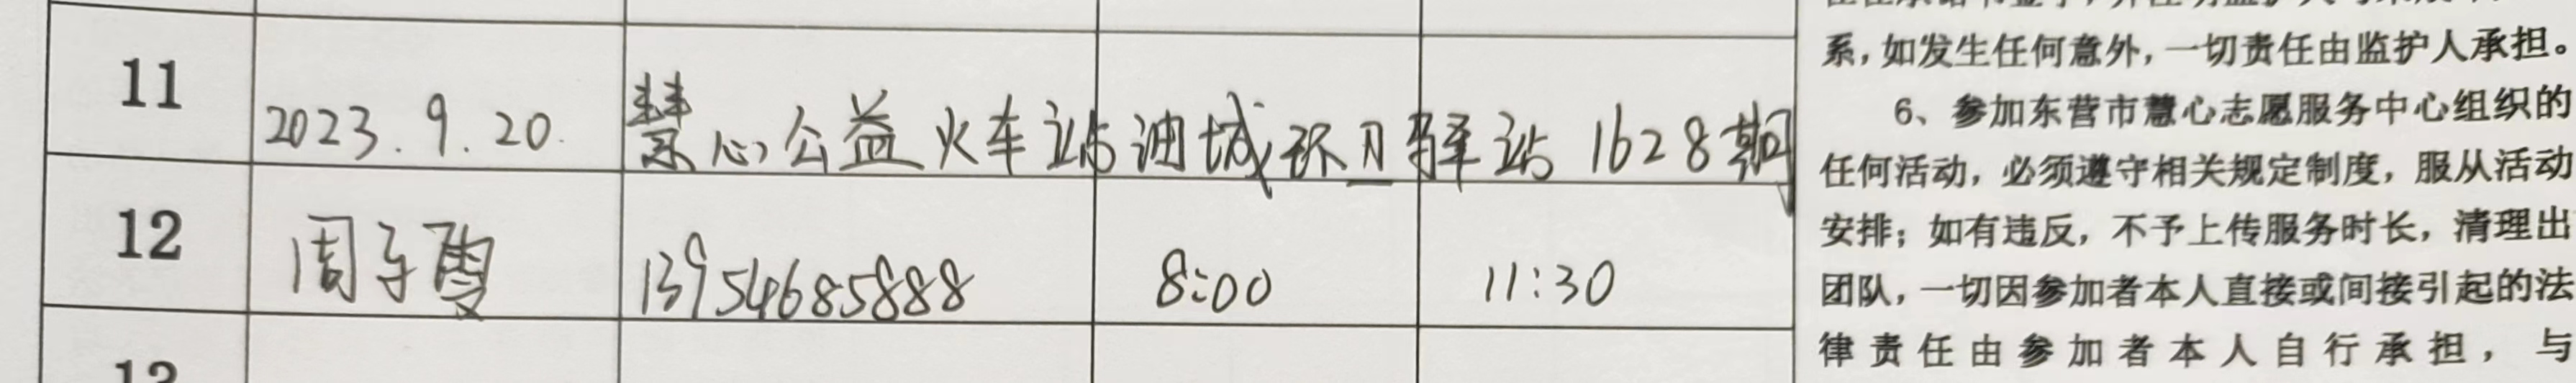 系，如发生任何意外，一切责任由监护人承担。
11 2023.9.20. 慧心公益火车站油城环卫驿站1628期
6、参加东营市慧心志愿服务中心组织的
任何活动，必须遵守相关规定制度，服从活动
12 周子雯 13954685888 8:00 11:30
安排；如有违反，不予上传服务时长，清理出
团队，一切因参加者本人直接或间接引起的法
律责任由参加者本人自行承担，与
13